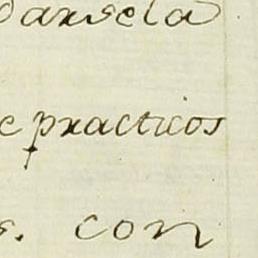 darsela
e practicos
s. con